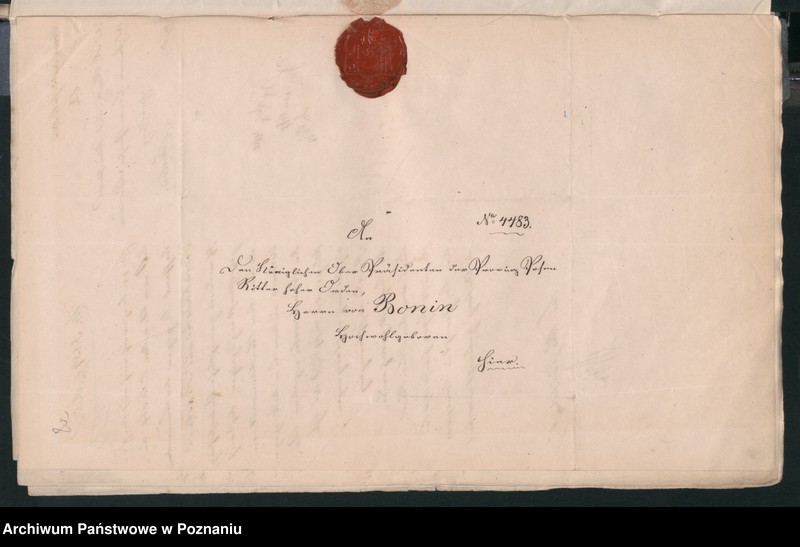 No. 4483.
An
Den Königlichen Ober Präsidenten der Provinz Posen
Ritter hoher Orden,
Herrn von Bonin
Hochwohlgeboren
hier.
Archiwum Państwowe w Poznaniu